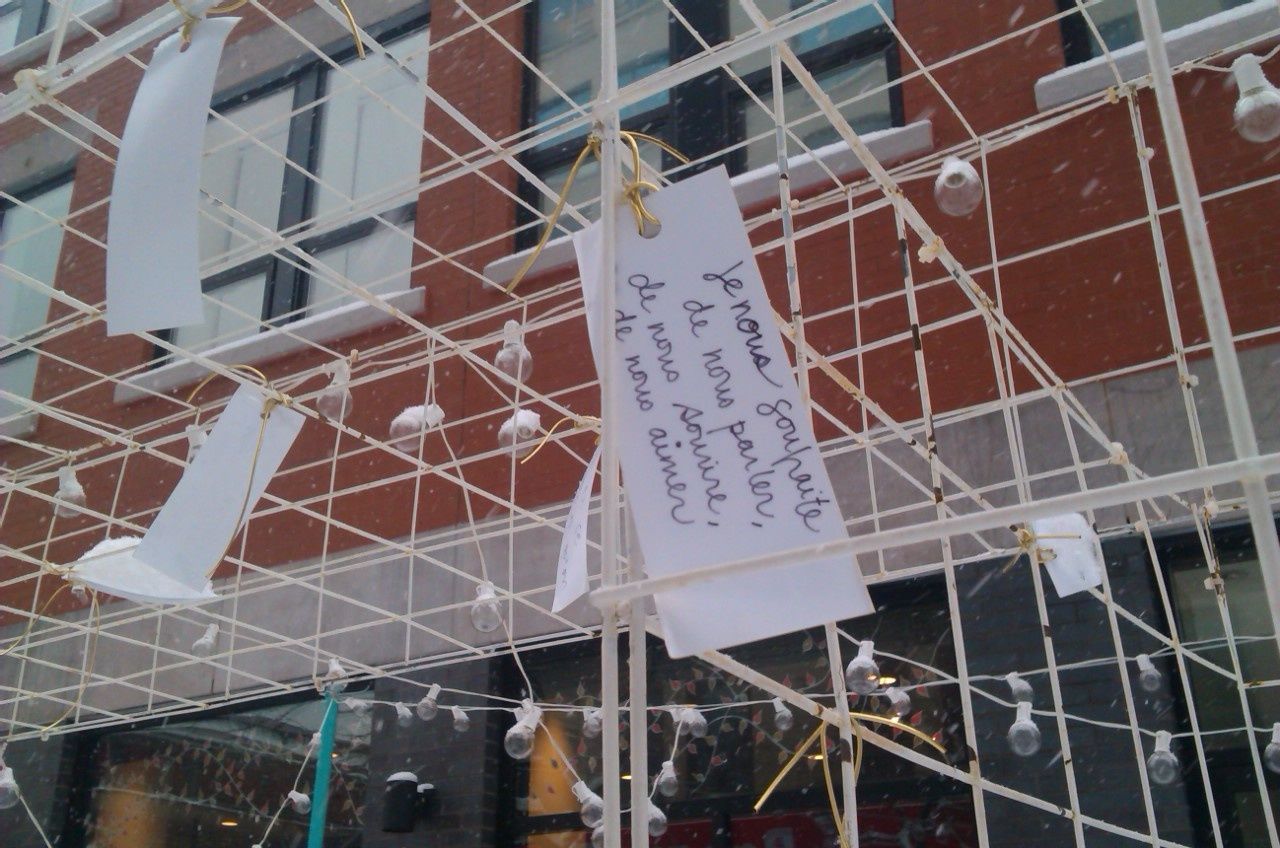 Je nous souhaite
de nous parler,
de nous sourire,
de nous aimer